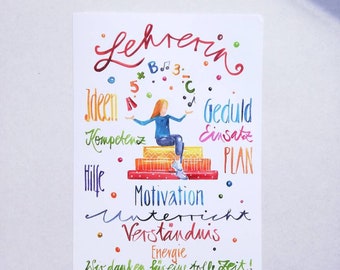 Lehrerin
5 * B 3 C A
Ideen
Geduld
Kompetenz
Einsatz
PLAN
Hilfe
Motivation
Unterricht
Verständnis
Energie
Wir danken für eine tolle Zeit!